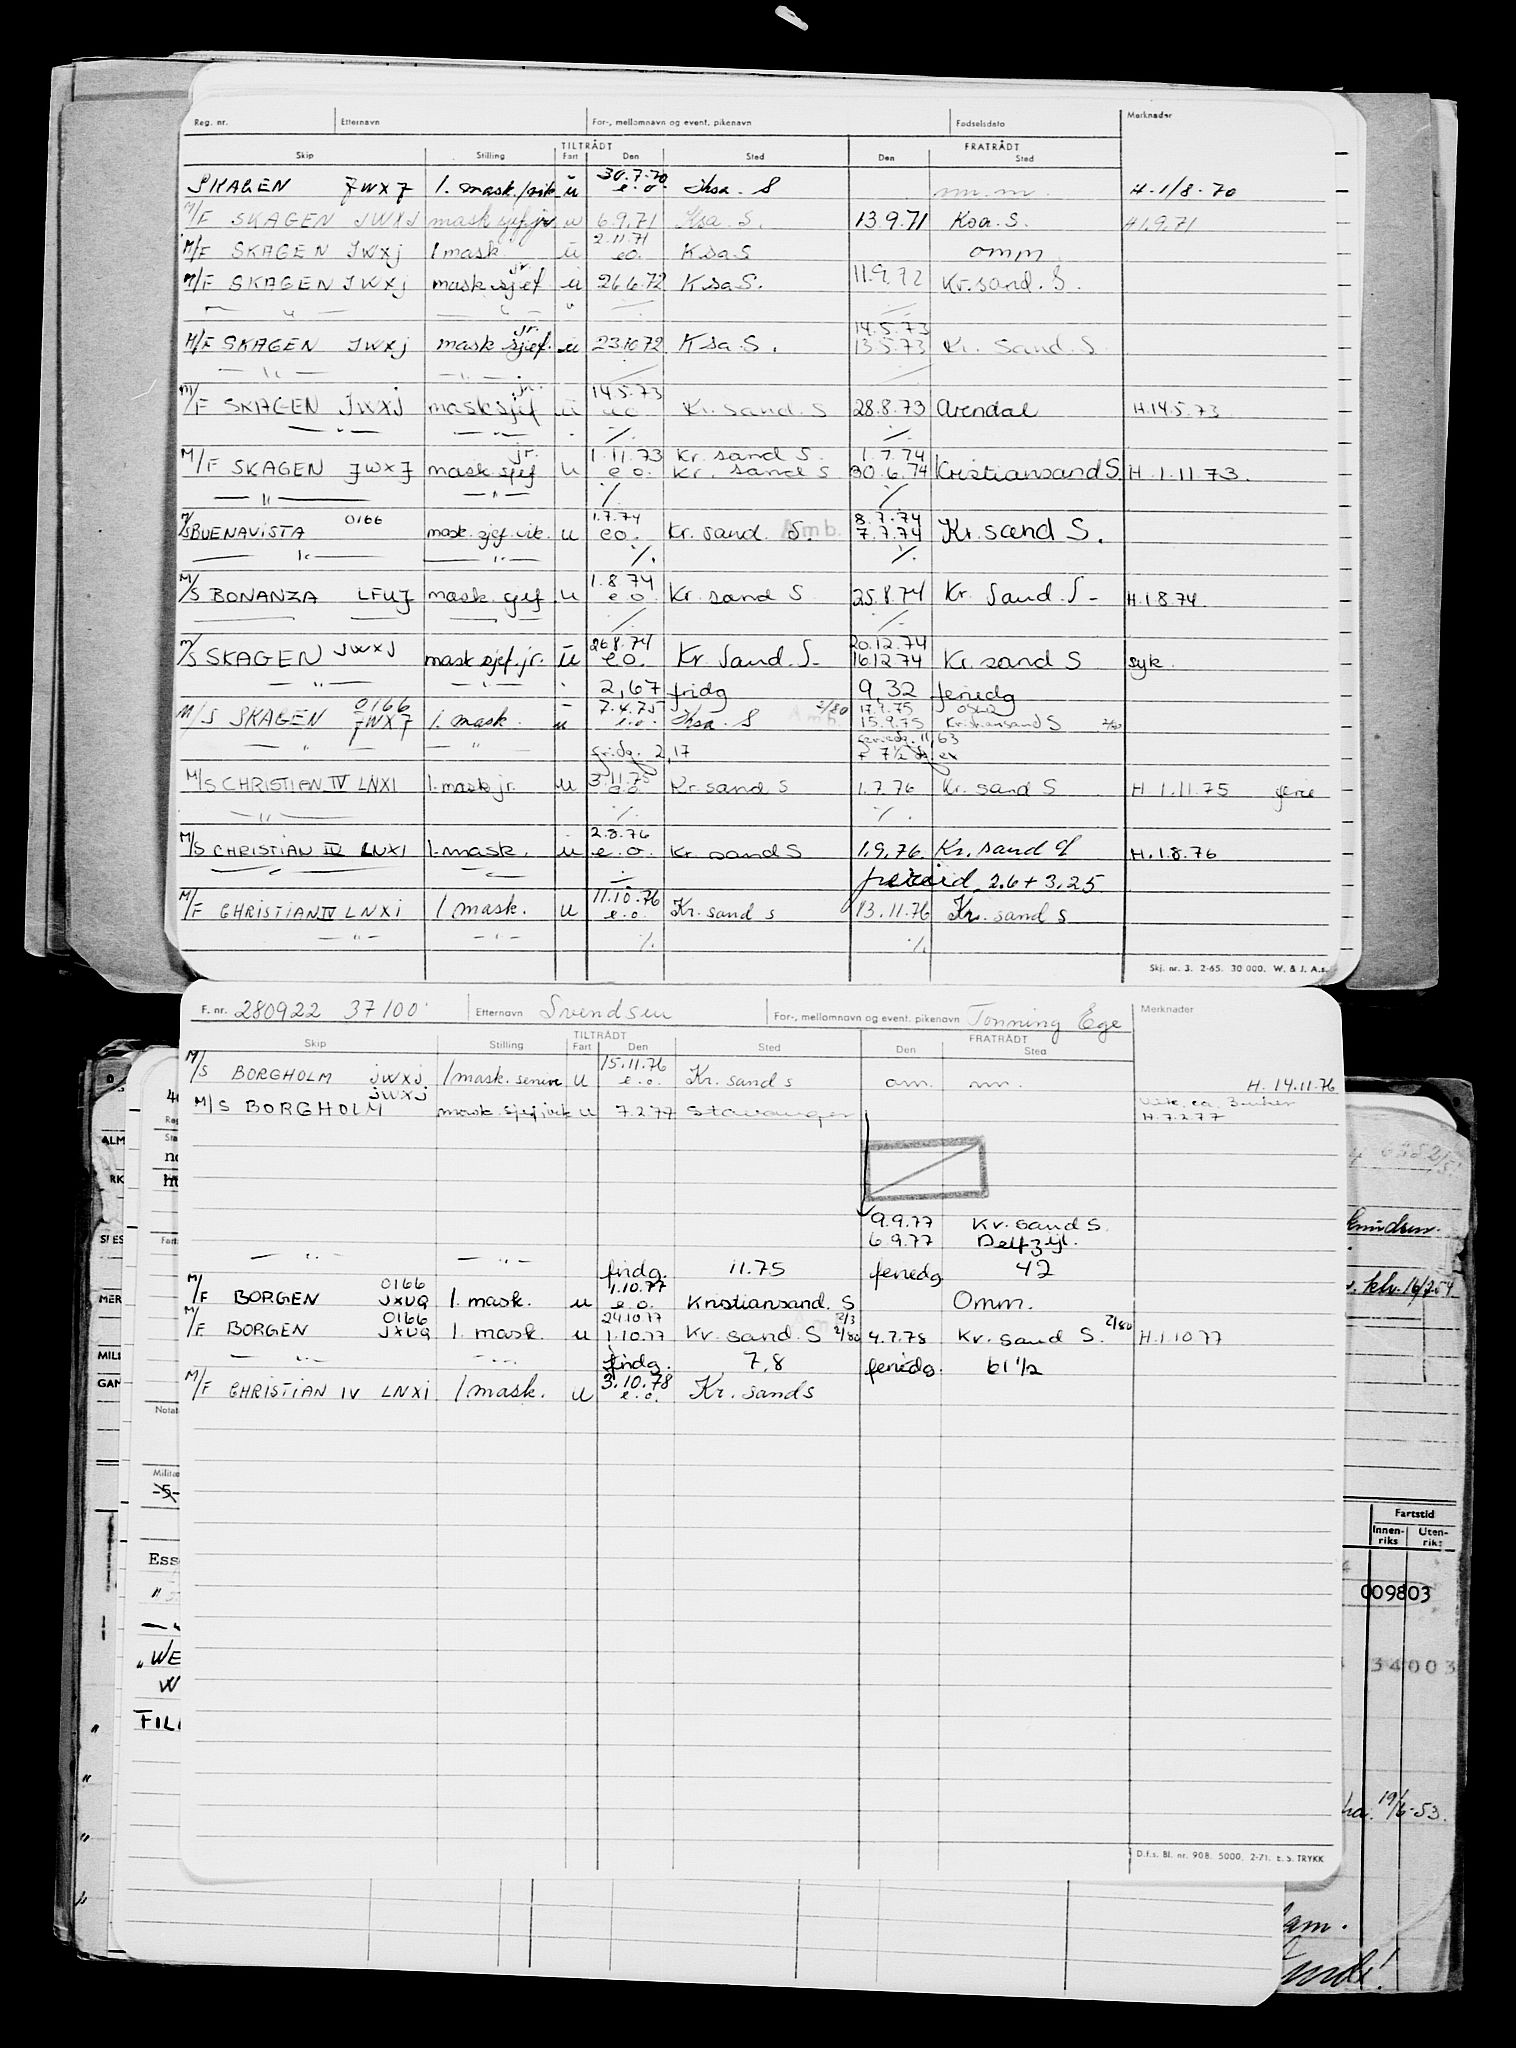 Reg. nr. Etternavn For-, mellomnavn og event. pikenavn Fødselsdato Merknader
TILTRÅDT FRATRÅDT
Skip Stilling Fart Den Sted Den Sted
30.7.70
SKAGEN JWXJ 1. mask./vik u e.o. Krsa. S m.m. H. 1/8-70
M/F SKAGEN JWXJ mask sjef jr u 6.9.71 Ksa. S. 13.9.71 Ksa. S. H 1.9.71
2.11.71
M/F SKAGEN JWXJ 1 mask u eo. Ksa S omm
jr.
M/F SKAGEN JWXJ mask sjef u 26.6.72 Ksa S. 11.9.72 Kr. sand. S.
— " — — " — " ./. ./.
jr. 14.5.73
M/F SKAGEN JWXJ mask sjef. u 23.10.72 Ksa S. 13.5.73 Kr. Sand. S
— " — — " — ./. ./.
jr. 14.5.73
M/F SKAGEN JWXJ mask sjef u e.o. Kr. sand. S 28.8.73 Arendal H. 14.5.73
— " — — " — ./. ./.
jr. 1.11.73 Kr. sand S. 1.7.74
M/F SKAGEN JWXJ mask. sjef u e o. Kr. sand S 30.6.74 Kristiansand S. H. 1.11 73.
— " — — " — ./. ./.
0166 1.7.74 8.7.74
M/S BUENAVISTA mask. sjef. vik. u eo. Kr. sand. S. Amb. 7.7.74 Kr. sand S.
— " — — " — ./. ./.
1.8.74
M/S BONANZA LFUJ mask. sjef u e o Kr. sand S 25.8.74 Kr. Sand. S- H. 1.8.74.
— " — — " — ./. ./.
JWXJ 26.8.74 20.12.74
M/S SKAGEN mask sjef. jr. u eo. Kr. Sand. S- 16.12.74 Kr. sand S syk.
— " — — " — 2,67 fridg 9,32 feriedg
0166 7.4.75 2/80 17.9.75 Oslo
M/S SKAGEN JWXJ 1. mask. u e.o. Krsa. S Amb. 15.9.75 Kristiansand S 2/80
feriedg. 11,63
— " — — " — fridg. 2,17
3.11.75
M/S CHRISTIAN IV LNXI 1. mask jr. u e.o. Kr. sand S 1.7.76 Kr. sand S H. 1.11.75 ferie
— " — ./. ./.
2.8.76
M/S CHRISTIAN IV LNXI 1. mask. u e.o. Kr sand S 1.9.76. Kr. sand S H. 1.8.76
— " — — " — ./. 2.6 + 3.25
11.10.76
M/F CHRISTIAN IV LNXI 1 mask. u e.o. Kr. sand s 13.11.76 Kr. sand s
— " — — " — ./. ./.
Skj. nr. 3. 2-65. 30 000. W. & J. A.s.
F. nr. 280922 37100 Etternavn Svendsen For-, mellomnavn og event. pikenavn Tønning Ege Merknader
TILTRÅDT FRATRÅDT
Skip Stilling Fart Den Sted Den Sted
15.11.76
M/S BORGHOLM JWXJ 1 mask. senior u e.o. Kr. sand s om. mn. H. 14.11.76
JWXJ
M/S BORGHOLM mask. sjef vik u 7.2.77 Stavanger
H. 7.2.77
9.9.77 Kr. sand S.
6.9.77 Delfzijl.
— " — — " — fridg. 11.75 feriedg. 42
0166 1.10.77
M/F BORGEN JXUQ 1. mask. u e.o. Kristiansand. S Omm.
0166 24.10.77 2/3 2/80
M/F BORGEN JXUQ 1. mask. u 1.10.77 Kr. sand. S 2/80 4.7.78 Kr. sand S. H. 1.10 77
— " — — " — fridg. 7,8 feriedg. 61 1/2
3.10.78
M/F CHRISTIAN IV LNXI 1 mask. u e.o. Kr. sand s
D.f.s. Bl. nr. 908. 5000, 2-71. E. S. TRYKK
ALM
MER
MILI
GAN
Knudsen.
Fartstid
Innen-riks Uten-riks
Ess
009803
"WE
34003
W
FILI
19/6-53.